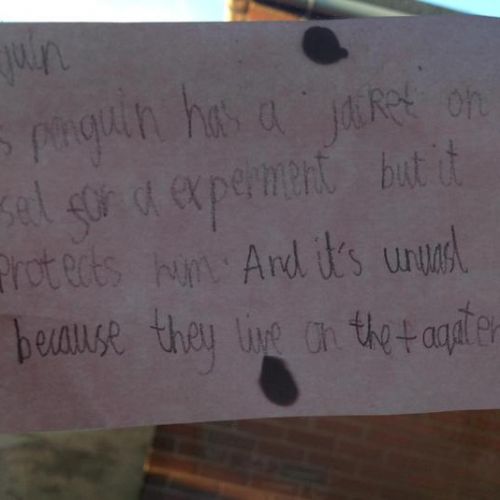 guin
s penguin has a jacket on
sed for a experment but it
Protects him. And it's unuasl
because they live on the